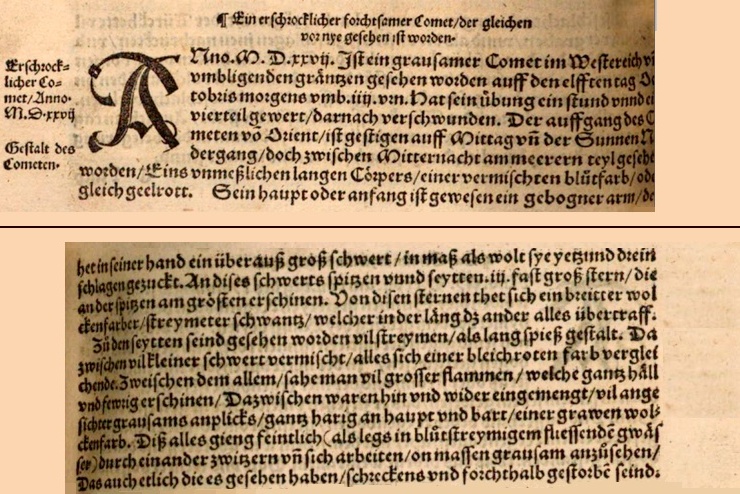 ¶ Ein erschrocklicher forchtsamer Comet/der gleichen
vor nye gesehen ist worden.
Erschrock=
licher Co=
met/Anno.
M.D.xxvij
Gestalt des
Cometen.
ANno.M.D.xxvij. Ist ein grausamer Comet im Westereich vñ
vmbligenden gräntzen gesehen worden auff den elfften tag
tobris morgens vmb.iiij.vrn. Hat sein übung ein stund vnnd
vierteil gewert/darnach verschwunden. Der auffgang des
meten võ Orient/ist gestigen auff Mittag vñ der Sunnen
dergang/doch zwischen Mitternacht am meerern teyl gesehe
worden/Eins vnmeßlichen langen Cörpers/einer vermischten blůtfarb/
gleich geelrott. Sein haupt oder anfang ist gewesen ein gebogner arm/
het in seiner hand ein überauß groß schwert/in maß als wolt sye yetzund drein
schlagen gezuckt. An dises schwerts spitzen vnnd seytten.iij.fast groß stern/die
an der spitzen am grösten erschinen. Von disen sternen thet sich ein breitter wol
ckenfarber/streymeter schwantz/welcher in der läng dz ander alles übertraff.
Zů den seytten seind gesehen worden vil streymen/als lang spieß gestalt. Da
zwischen vil kleiner schwert vermischt/alles sich einer bleichroten farb verglei
chende. Zweischen dem allem/sahe man vil grosser flammen/welche gantz häll
vnd fewrig erschinen/Dazwischen waren hin vnd wider eingemengt/vil ange
sichter grausams anplicks/gantz harig an haupt vnd bart/einer grawen wol=
ckenfarb. Diß alles gieng feintlich(als legs in blůtstreymigem fliessendē gwäs
ser)durch einander zwitzern vñ sich arbeiten/on massen grausam anzůsehen/
Das auch etlich die es gesehen haben/schreckens vnd forcht halb gestorbē seind.